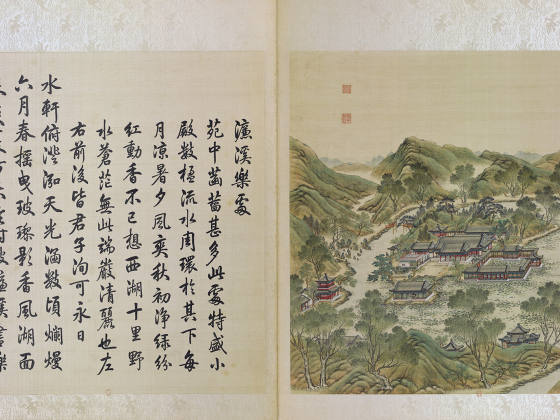 濂溪樂處
苑中菡萏甚多此處特盛小
殿數楹流水周環於其下每
月涼暑夕風爽秋初淨綠紛
紅動香不已想西湖十里野
水蒼茫無此端嚴清麗也左
右前後皆君子洵可永日
水軒俯澄泓天光涵數頃爛熳
六月春搖曳玻瓈影香風湖面